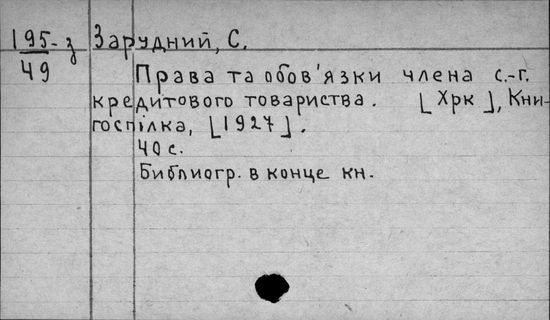 195-з
49
Зарудний, С.
Права та обов'язки члена с.-г.
кредитового товариства. [Хрк], Кни-
госпілка, [1927].
40 с.
Библиогр. в конце кн.